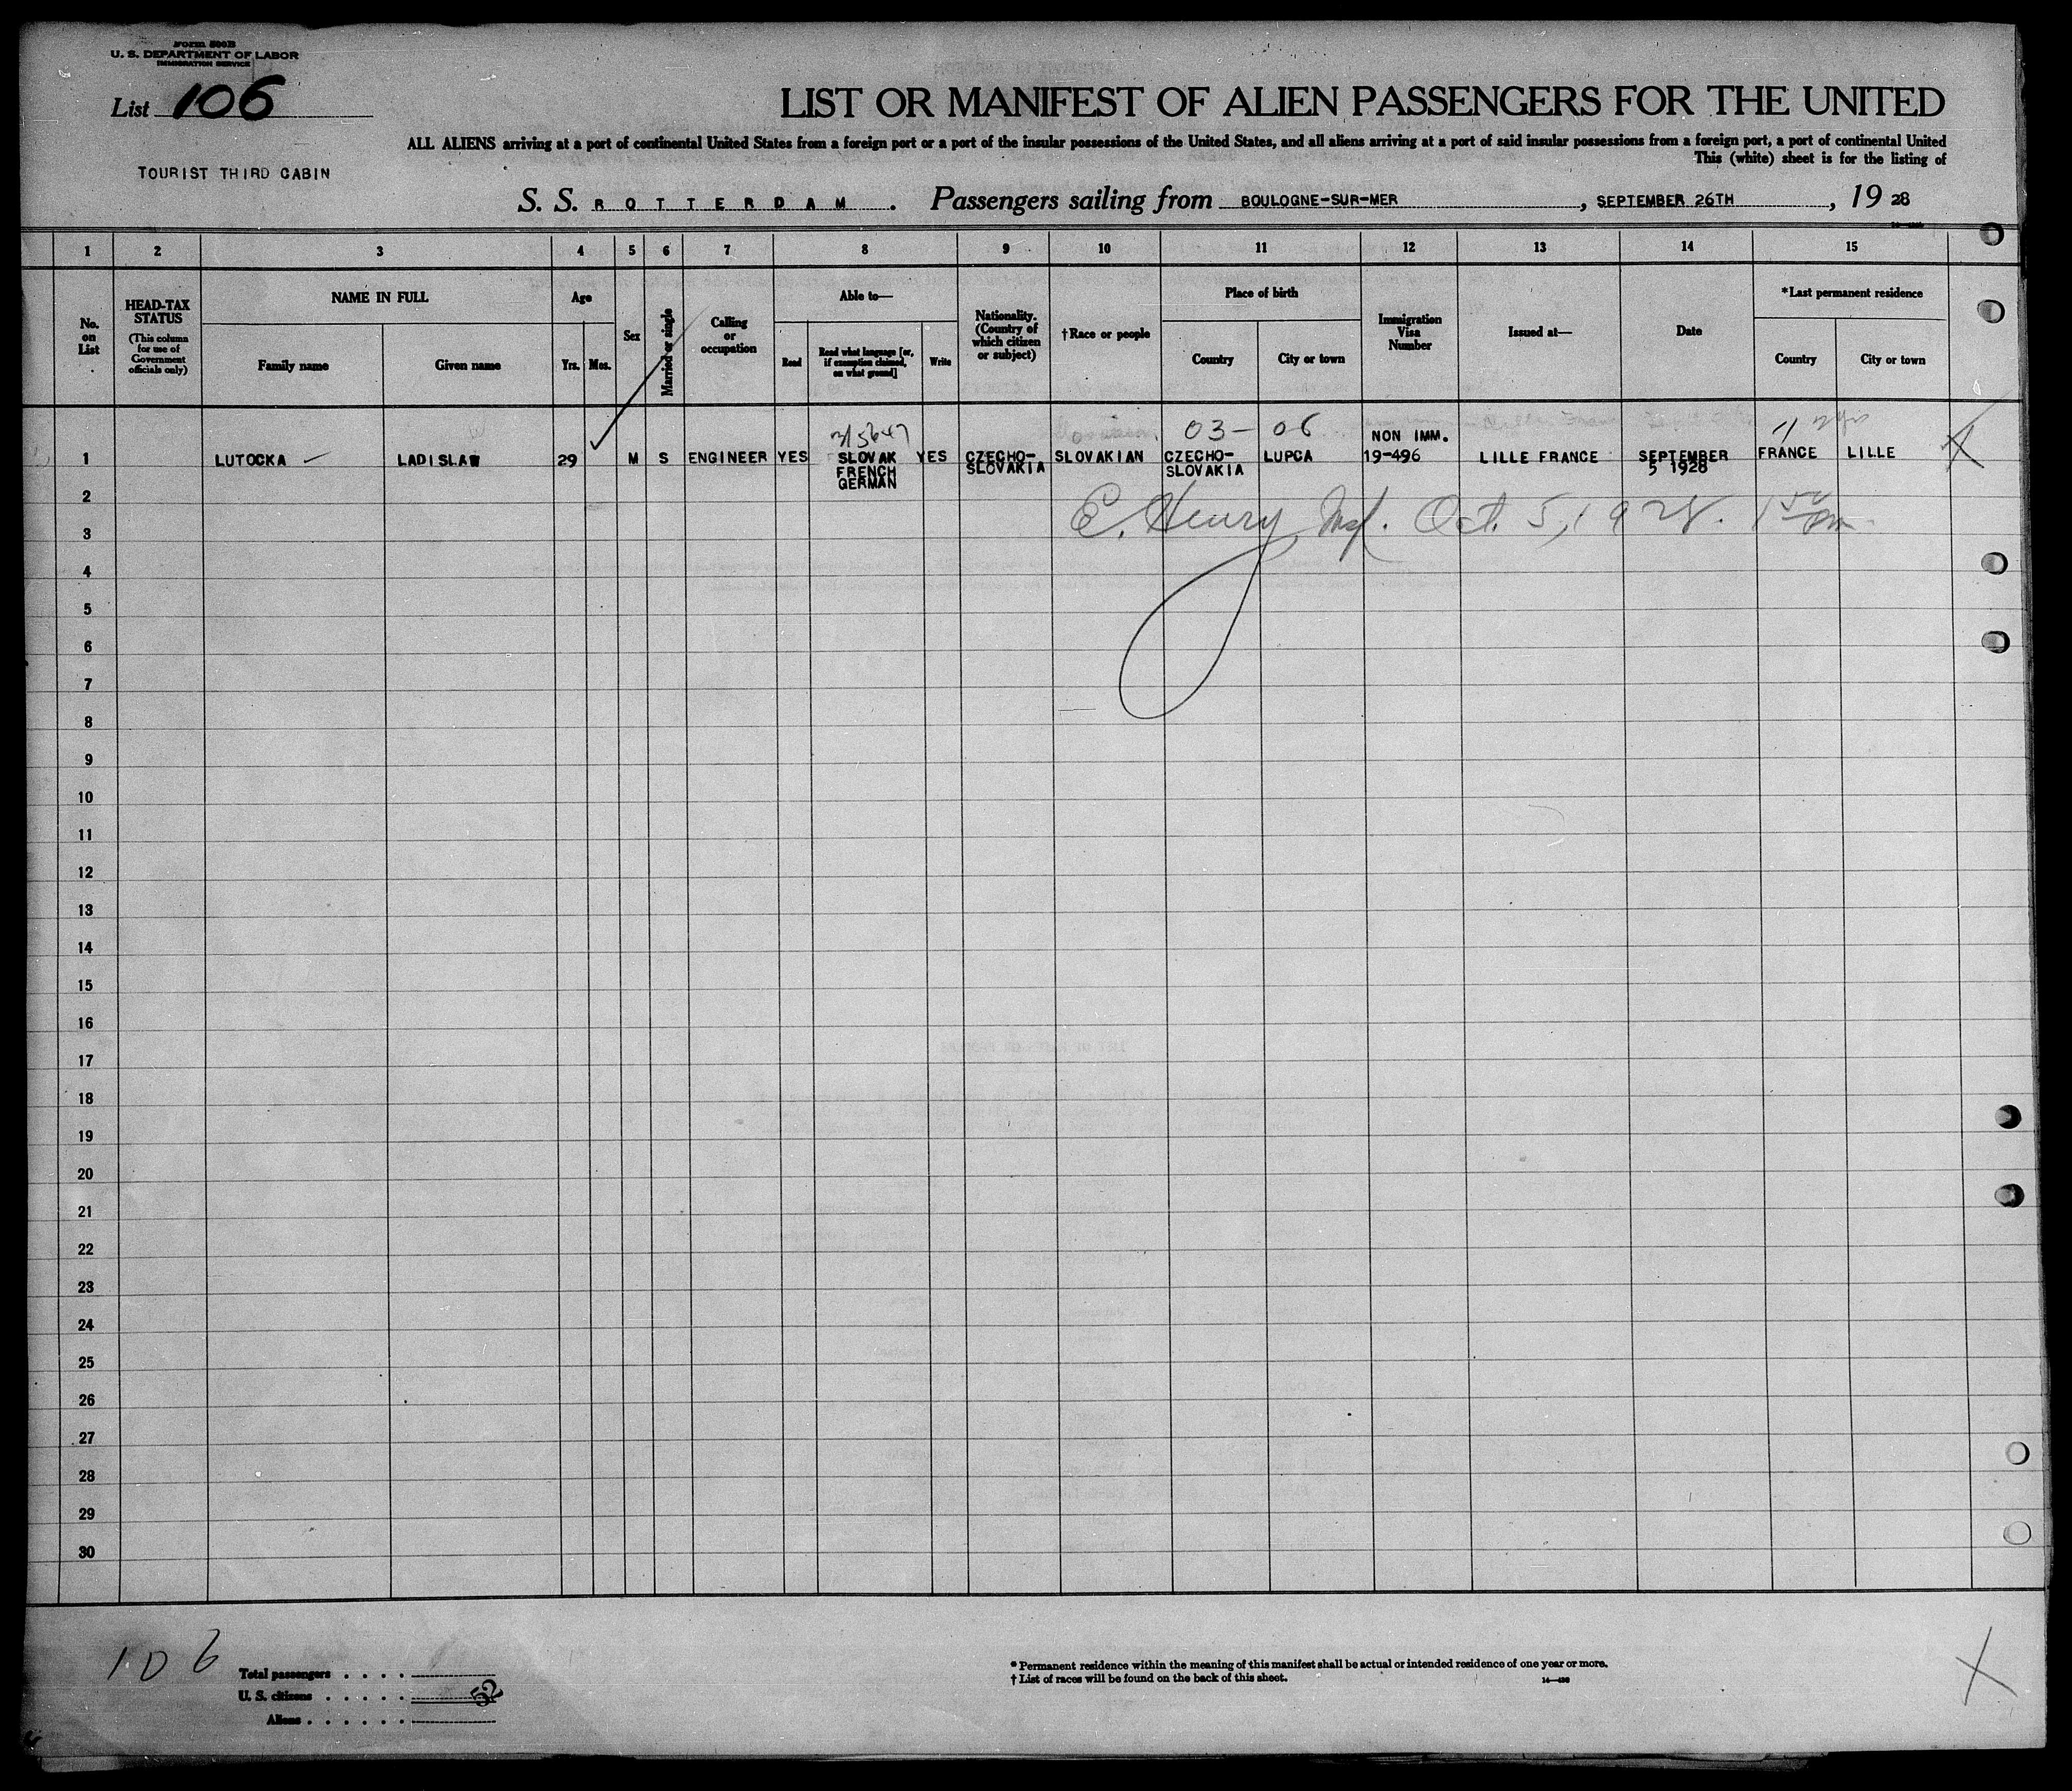 Form 500B
U. S. DEPARTMENT OF LABOR
IMMIGRATION SERVICE
List 106
LIST OR MANIFEST OF ALIEN PASSENGERS FOR THE UNITED
ALL ALIENS arriving at a port of continental United States from a foreign port or a port of the insular possessions of the United States, and all aliens arriving at a port of said insular possessions from a foreign port, a port of continental United
This (white) sheet is for the listing of
TOURIST THIRD CABIN
S. S. ROTTERDAM. Passengers sailing from BOULOGNE-SUR-MER, SEPTEMBER 26TH, 1928
1 2 3 4 5 6 7 8 9 10 11 12 13 14 15
No. on List
HEAD-TAX STATUS
(This column for use of Government officials only)
NAME IN FULL
Family name
Given name
Age
Yrs. Mos.
Sex
Married or single
Calling or occupation
Able to—
Read
Read what language [or, if exemption claimed, on what ground]
Write
Nationality. (Country of which citizen or subject)
†Race or people
Place of birth
Country
City or town
Immigration Visa Number
Issued at—
Date
*Last permanent residence
Country
City or town
03- 06
NON IMM.
1 LUTOCKA LADISLAW 29 M S ENGINEER YES SLOVAK YES CZECHO- SLOVAKIAN CZECHO- LUPCA 19-496 LILLE FRANCE SEPTEMBER FRANCE LILLE X
FRENCH SLOVAKIA SLOVAKIA 5 1928
GERMAN
2
E. Henry Oct. 5, 1928.
3
4
5
6
7
8
9
10
11
12
13
14
15
16
17
18
19
20
21
22
23
24
25
26
27
28
29
30
106
Total passengers
U. S. citizens
52
Aliens
* Permanent residence within the meaning of this manifest shall be actual or intended residence of one year or more.
† List of races will be found on the back of this sheet.
X